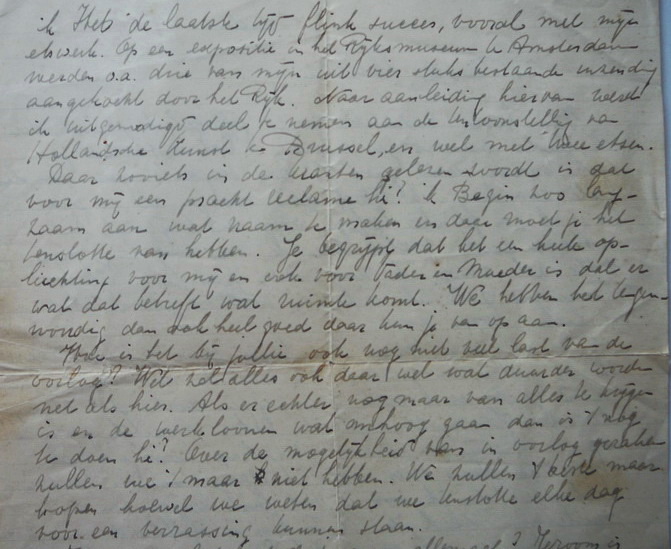 ik heb de laatste tijd flink succes, vooral met mijn
etswerk. Op een expositie in het Rijksmuseum te Amsterdam
werden o.a. drie van mijn uit vier stuks bestaande inzending
aangekocht door het Rijk. Naar aanleiding hiervan werd
ik uitgenodigd deel te nemen aan de tentoonstellig van
Hollandsche Kunst te Brussel, en wel met twee etsen.
Daar zoiets in de kranten gelezen wordt is dat
voor mij een pracht reclame hè? ik Begin zoo lang-
zaam aan wat naam te maken en daar moet je het
tenslotte van hebben. Je begrijpt dat het een heele op-
luchting voor mij en ook voor Vader en Moeder is dat er
wat dat betreft wat ruimte komt. We hebben het tegen-
woordig dan ook heel goed daar kun je van op aan.
Hoe is het bij jullie ook nog niet veel last van de
oorlog? Wel zal alles ook daar wel wat duurder worden
net als hier. Als er echter nog maar van alles te krijgen
is en de werkloonen wat omhoog gaan dan is 't nog
te doen hè? Over de mogelijkheid van in oorlog geraken
zullen we 't maar niet hebben. We zullen 't maar
hopen hoewel we weten dat we tenslotte elke dag
voor een verrassing kunnen staan.
allemaal?